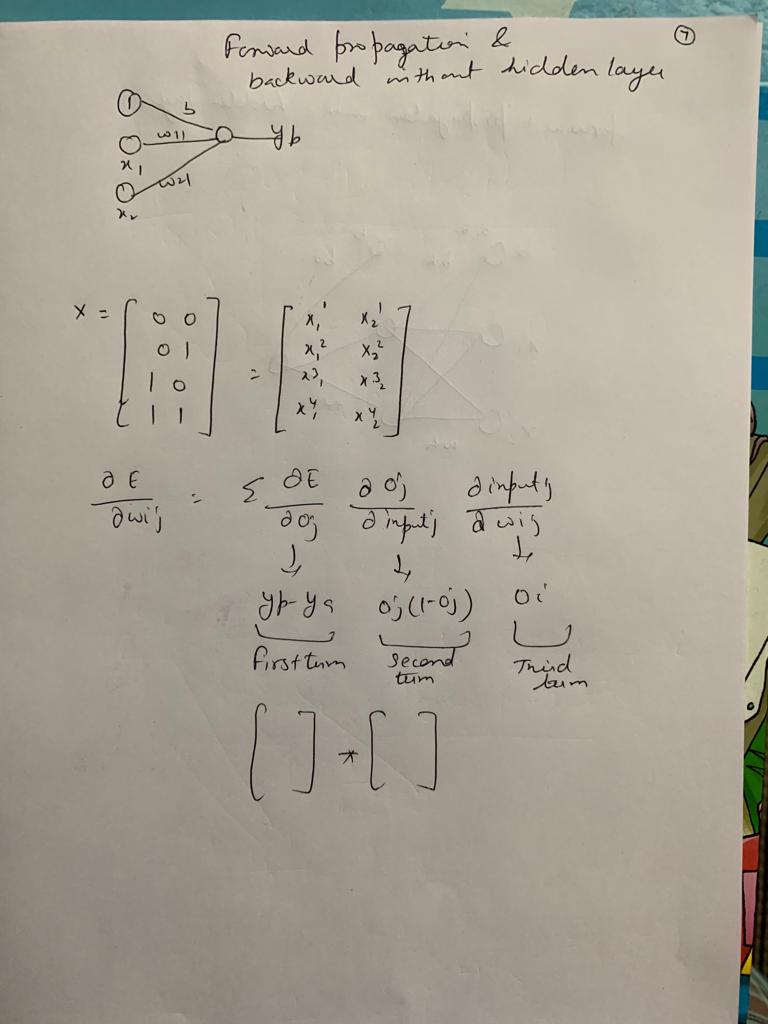 7
Forward propagation &
backward without hidden layer
1 b
w11 yb
x1
w21
x2
X = [ 0 0 ] = [ x₁¹ x₂¹ ]
[ 0 1 ] [ x₁² x₂² ]
[ 1 0 ] [ x₁³ x₂³ ]
[ 1 1 ] [ x₁⁴ x₂⁴ ]
∂E/∂wij = Σ ∂E/∂oj ∂oj/∂inputj ∂inputj/∂wij
↓ ↓ ↓
yb-ya oj(1-oj) oi
First term Second term Third term
[ ] * [ ]